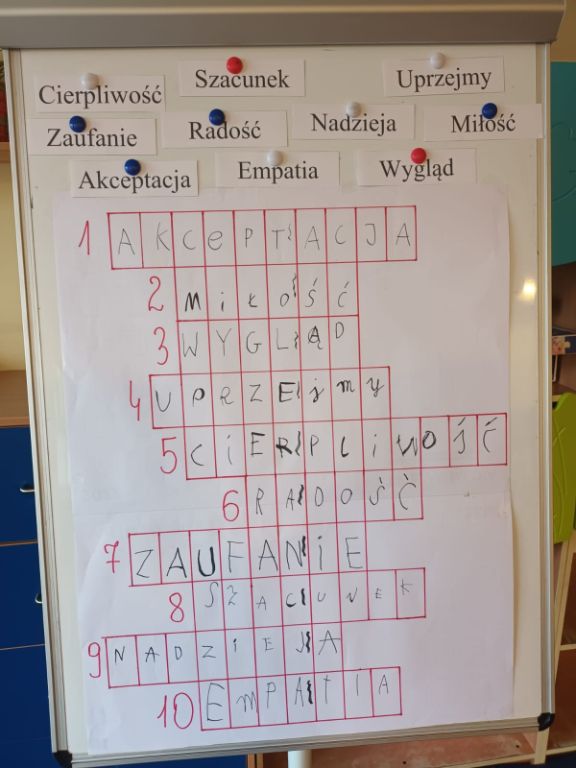 Cierpliwość Szacunek Uprzejmy
Zaufanie Radość Nadzieja Miłość
Akceptacja Empatia Wygląd
1 AKCePTACJA
2 MiŁOŚĆ
3 WYGLĄD
4 UPRZEjmy
5 CiERPLiWOŚĆ
6 RADOŚĆ
7 ZAUFANiE
8 SZACUNEK
9 NADZIEJA
10 EmPATIA